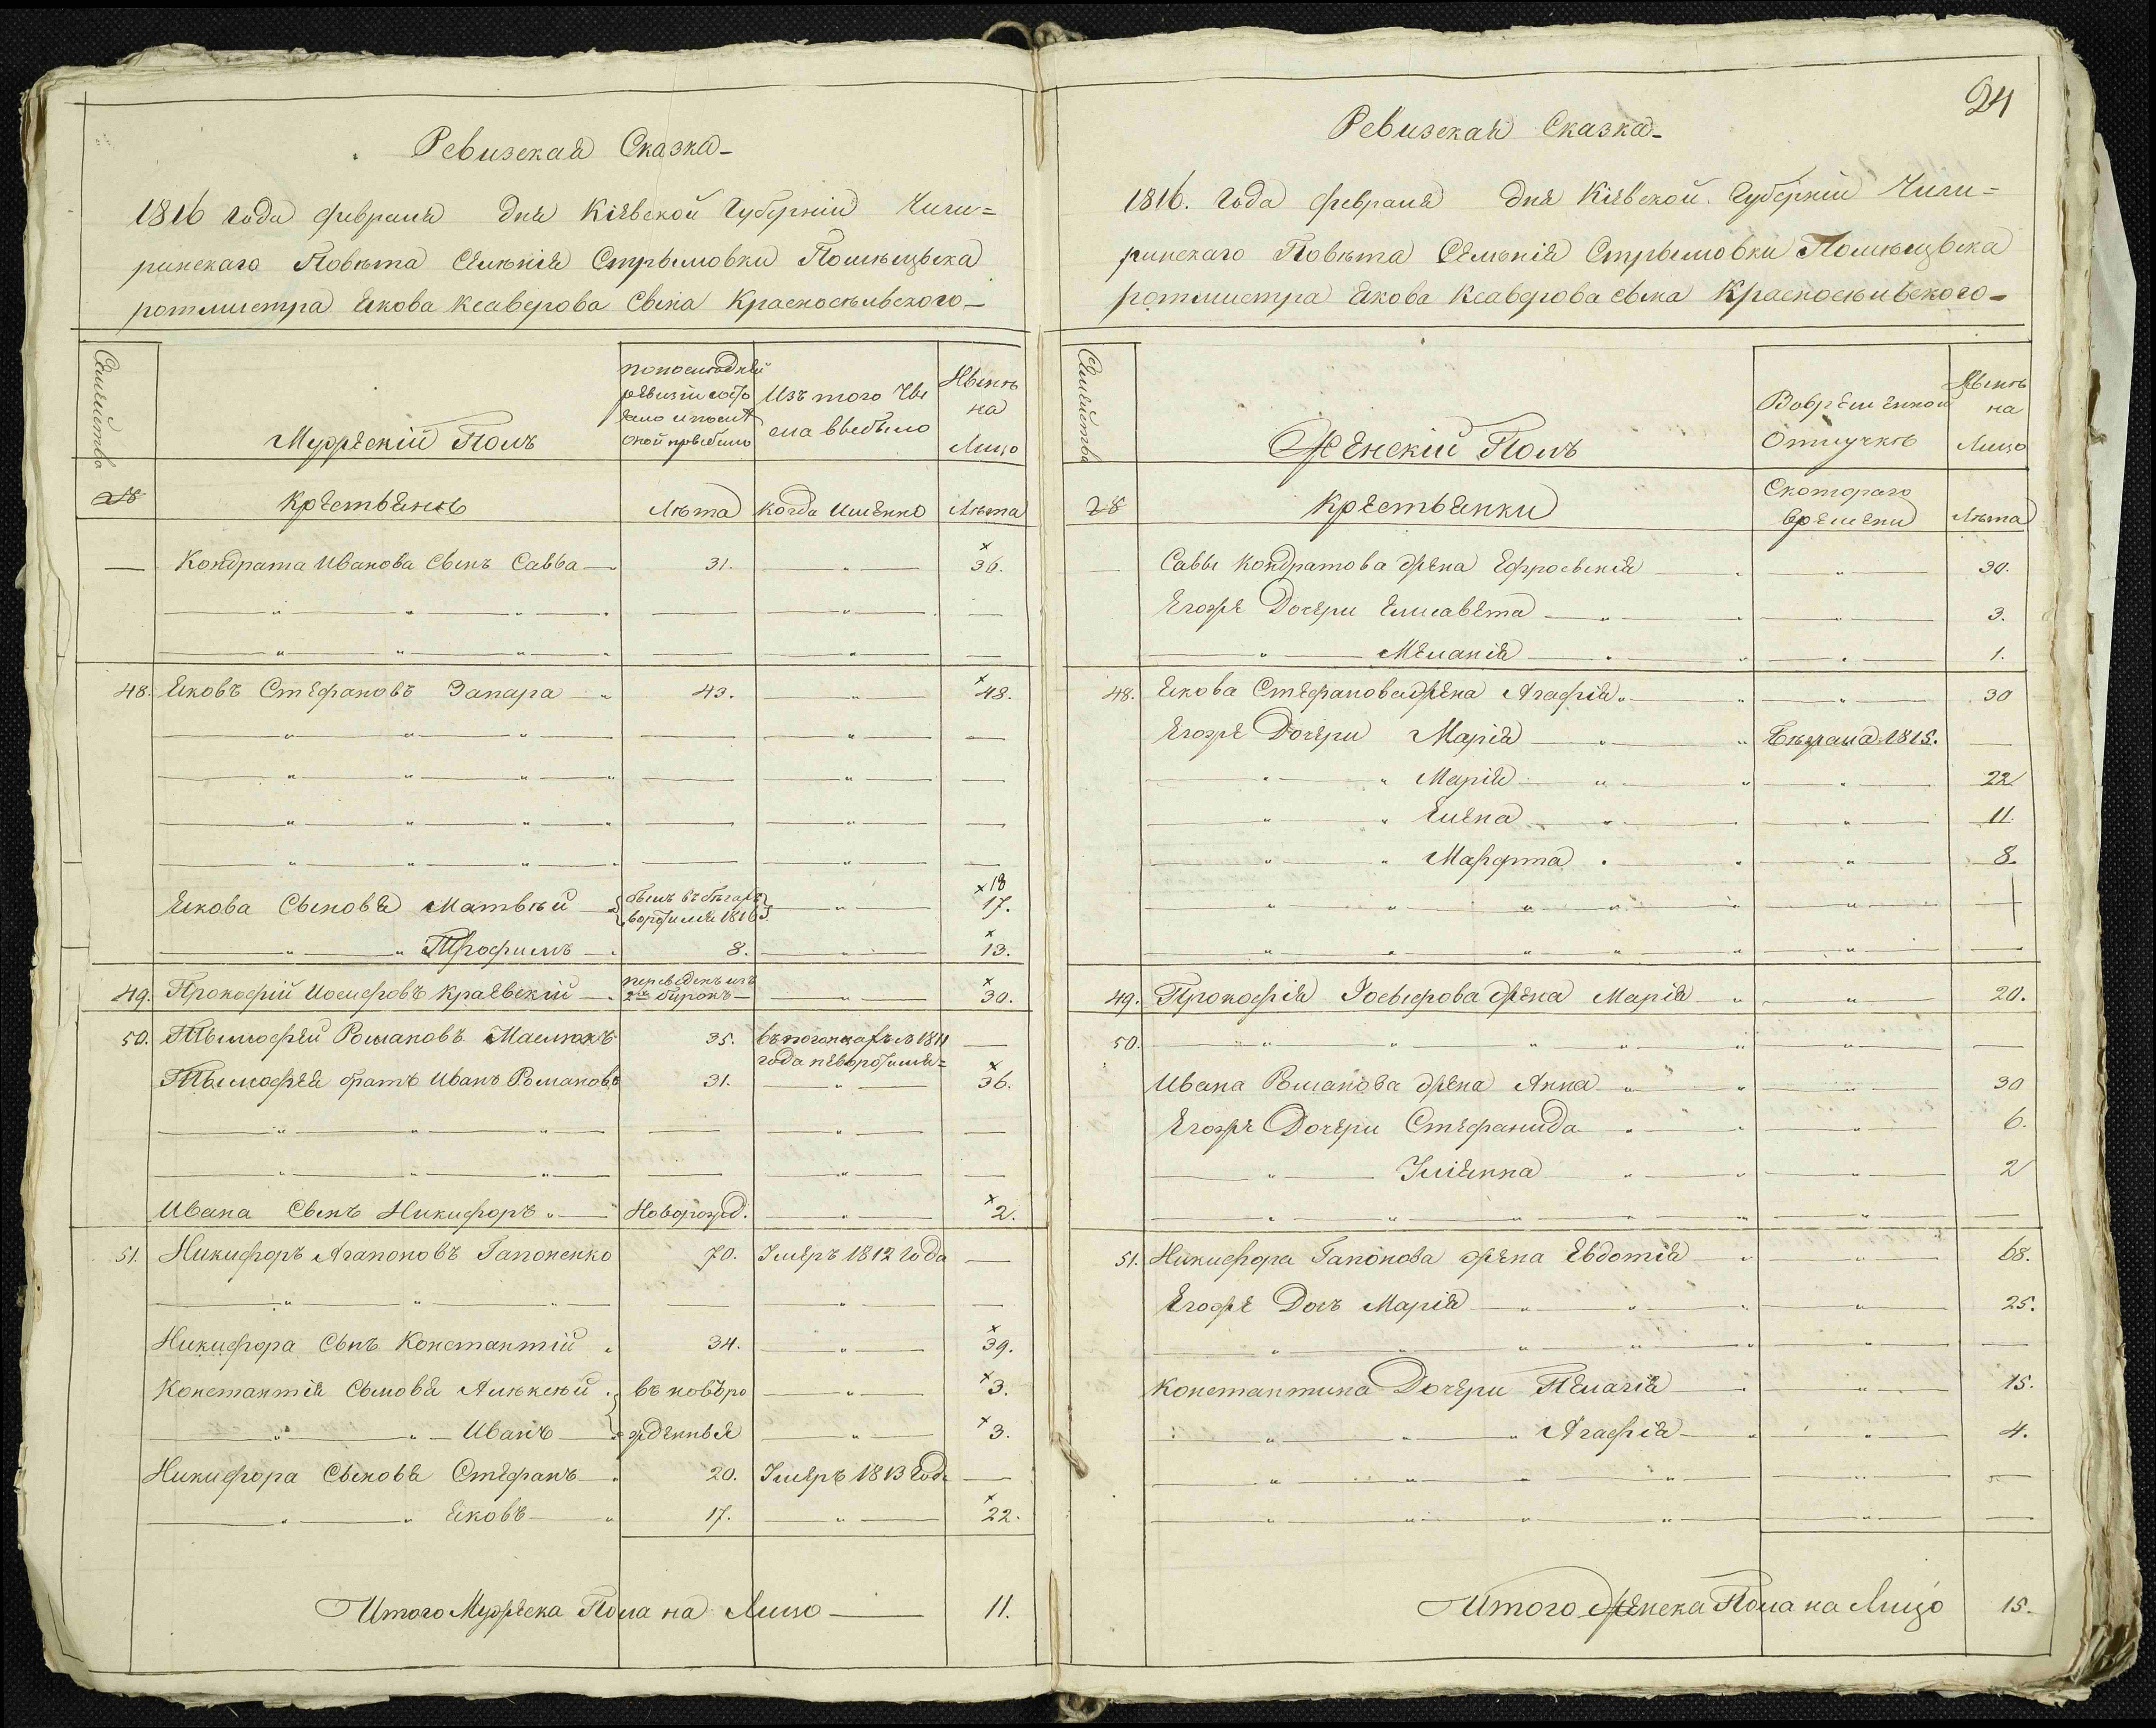 Ревизская Сказка
1816 года февраля дня Кіевской Губерніи Чиги=
ринскаго Повѣта Селѣнія Стрымовки Помѣщыка
ротмистра Якова Ксаверова Сына Красносѣльского
Семейство
Мужескій Полъ
попослѣдней
ревизіи состо
яло и послѣ
оной прыбыло
Изъ того Чы
сла выбыло
Нынѣ
на
Лицо
28
Крестьянѣ
Лѣта
Когда Именно
Лѣта
Кондрата Иванова Сынъ Савва 31. 36.
48. Яковъ Стефановъ Запара 43. 48.
Якова Сыновя Матвѣй былъ въ бѣгахъ воротился 1816 18 17.
Трофимъ 8. 13.
49. Прокофій Иосифовъ Краевскій переведенъ изъ 30.
50. Тымофей Романовъ 35. въ погонцахъ 1811
года неворотился=
Тымофея братъ Иванъ Романовъ 31. 36.
Ивана Сынъ Никифоръ Новорожд. 2.
51. Никифоръ Агапоновъ Гапоненко 70. Умеръ 1812 года
Никифора Сынъ Константій 34. 39.
Константія Сыновя Алѣксѣй въ новоро 3.
Иванъ жденныя 3.
Никифора Сыновя Стефанъ 20. Умеръ 1813 Года
Яковъ 17. 22.
Итого Мужеска Пола на Лицо 11.
24
Ревизская Сказка
1816. Года февраля дня Кіевской Губерніи Чиги=
ринскаго Повѣта Селѣнія Стрымовки Помѣщыка
ротмистра Якова Ксаверова сына Красносѣльского
Семейство
Женскій Полъ
Вовременной
Отлучкѣ
Нынѣ
на
Лицо
28
Крестьянки
Скотораго
времени
Лѣта
Саввы Кондратова жена Ефросынія 30.
Егожъ Дочери Елисавета 3.
Меланія 1.
48. Якова Стефанова жена Агафія 30
Егоже Дочери Марія Бѣжала 1815.
Марія 22
Елена 11.
Марфта 8.
49. Прокофія Іосыфова жена Марія 20.
50.
Ивана Романова жена Анна 30
Егоже Дочери Стефанида 6.
Уліянна 2
51. Никифора Гапонова жена Евдотія 68.
Егоже Дочъ Марія 25.
Константина Дочери Пелагія 15.
Агафія 4.
Итого Женска Пола на Лицо 15.